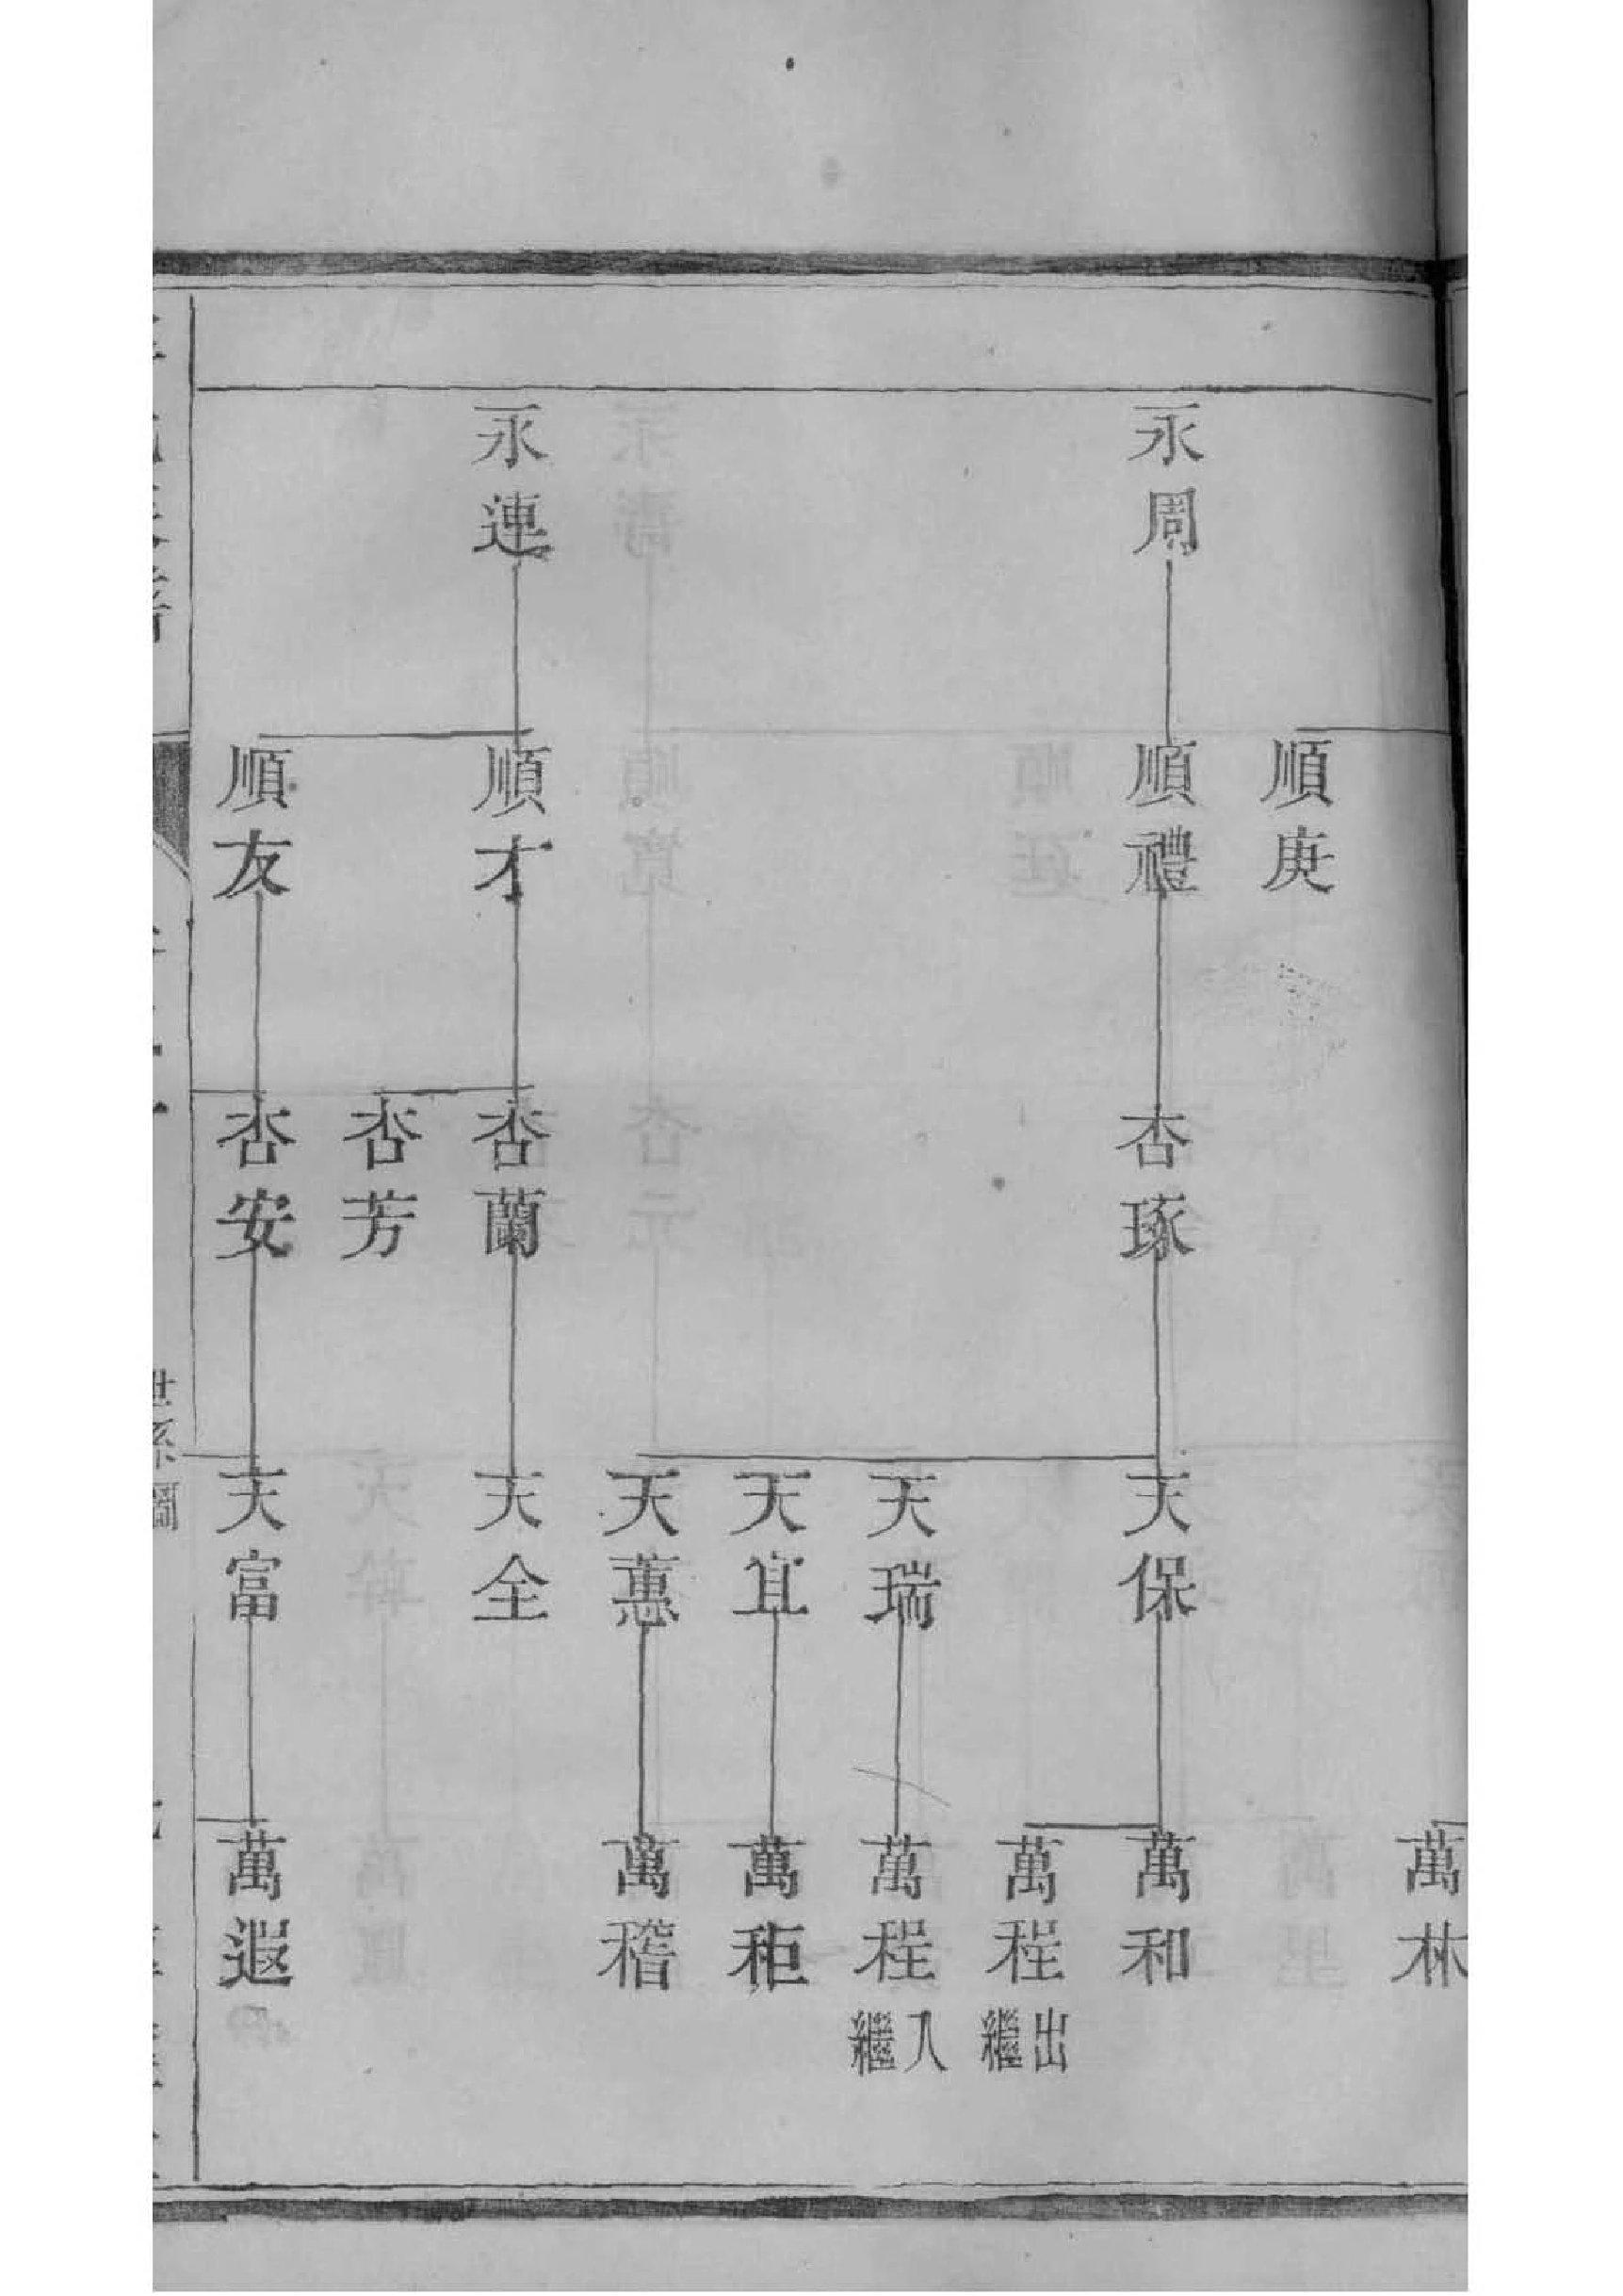 永周
永連
順庚
順禮
順才
順友
杏琢
杏蘭
杏芳
杏安
天保
天瑞
天宜
天蕙
天全
天富
萬林
萬和
萬程 出繼
萬程 入繼
萬秬
萬稽
萬遐
世系圖